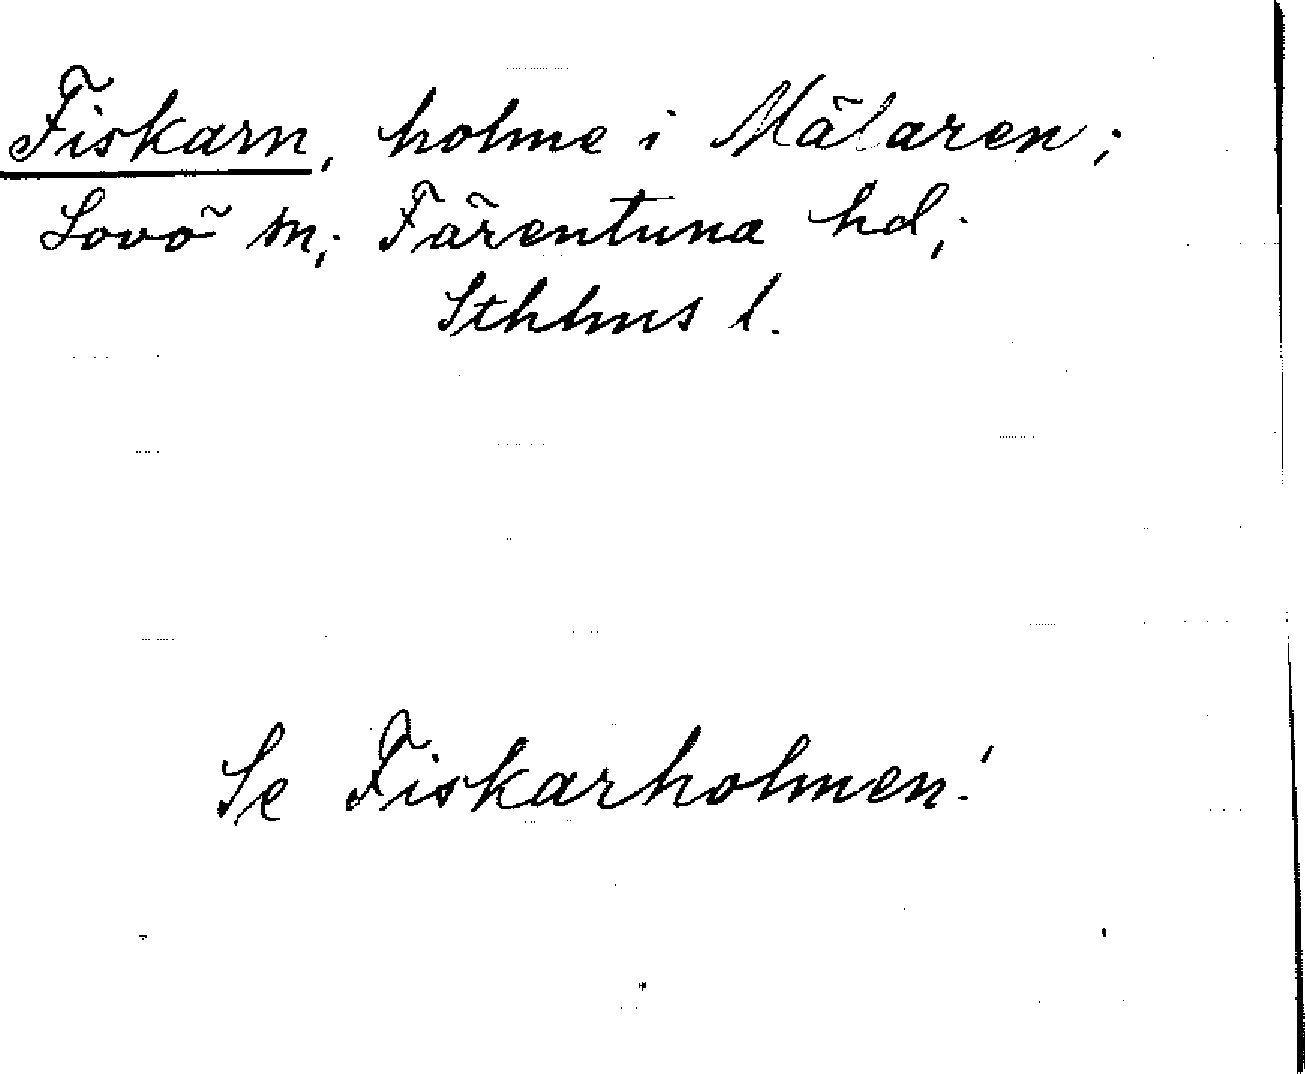 Fiskarn, holme i Mälaren;
Lovö sn; Färentuna hd;
Sthlms l.
Se Fiskarholmen!